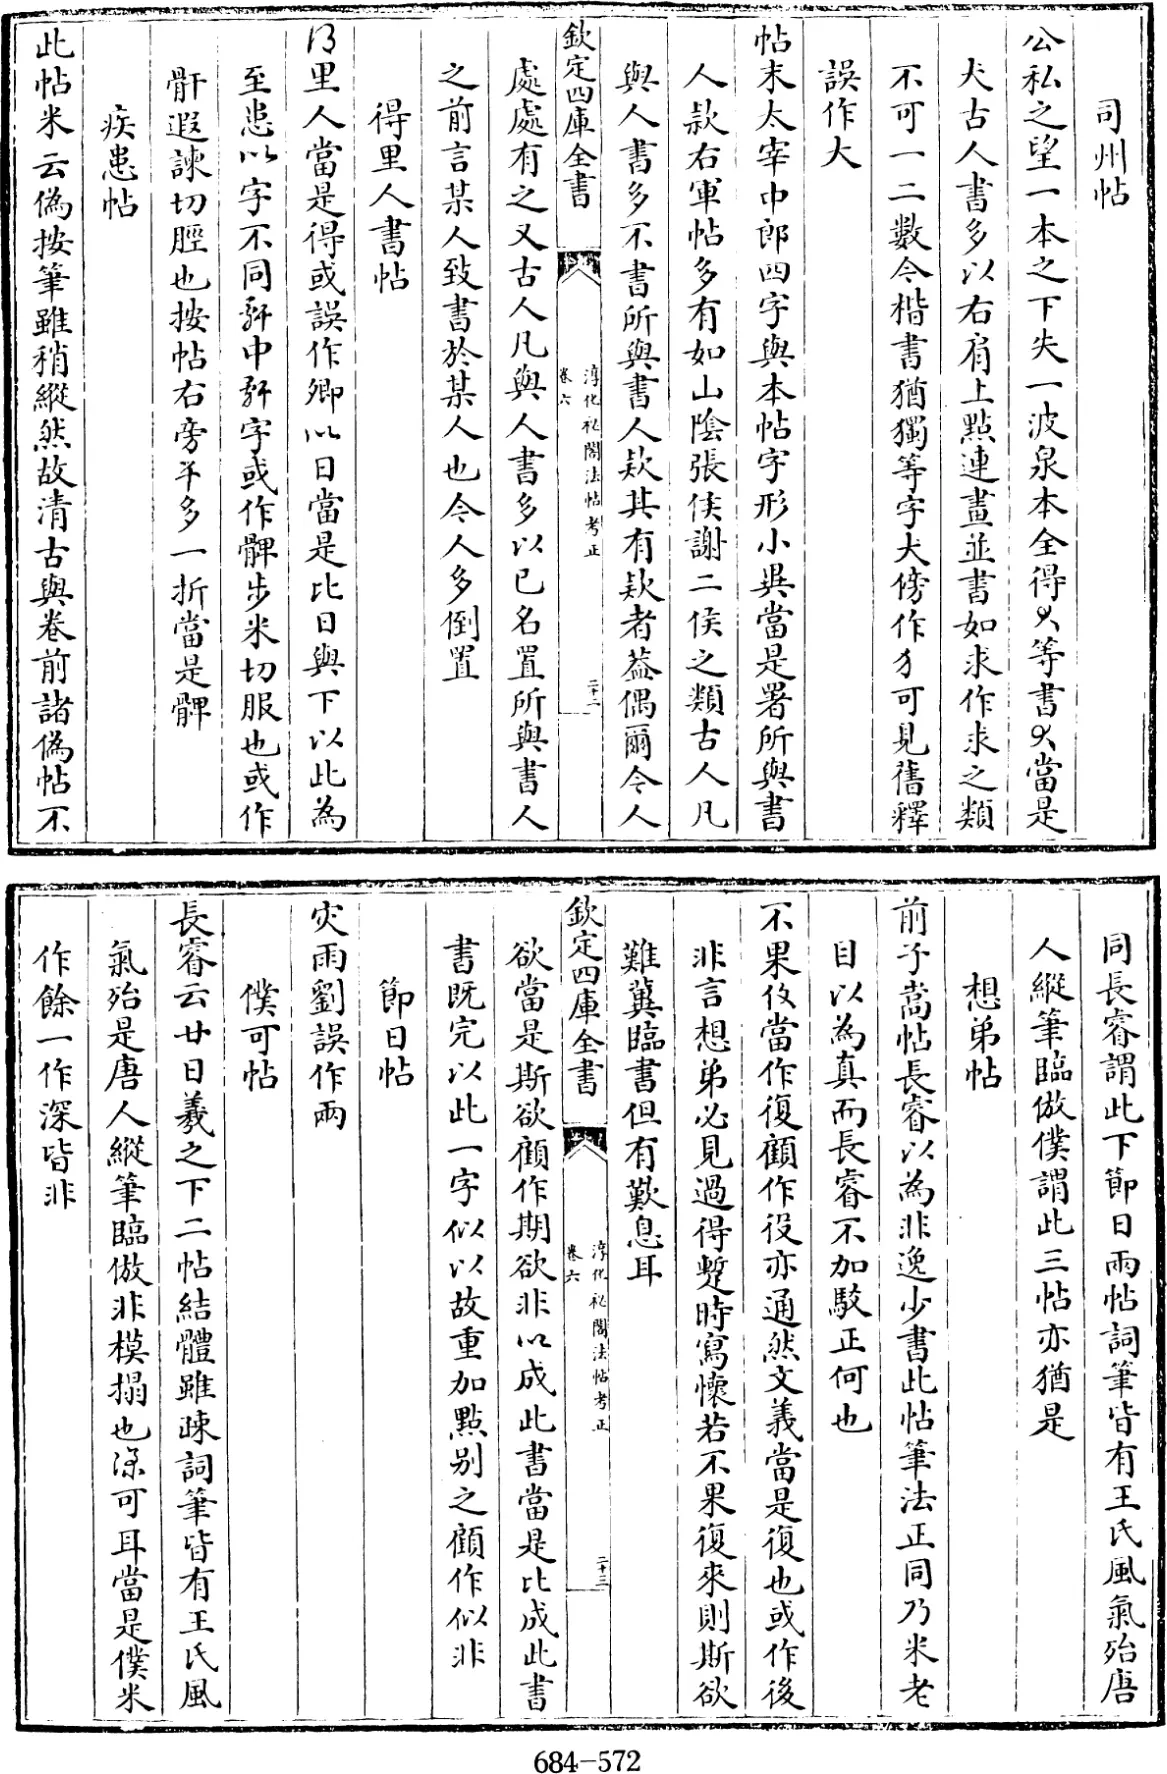 司州帖
公私之望一本之下失一波泉本全得等書當是
犬古人書多以右肩上點連畫並書如求作求之類
不可一二數今楷書猶獨等字犬傍作犭可見舊釋
誤作大
帖末太宰中郎四字與本帖字形小異當是署所與書
人款右軍帖多有如山陰張侯謝二侯之類古人凡
與人書多不書所與書人欵其有欵者葢偶爾今人
欽定四庫全書
淳化祕閣法帖考正
卷六
二十二
處處有之又古人凡與人書多以已名置所與書人
之前言某人致書於某人也今人多倒置
得里人書帖
里人當是得或誤作卿以日當是比日與下以此為
至患以字不同骭中骭字或作髀步米切服也或作
骭遐諫切脛也按帖右旁半多一折當是髀
疾患帖
此帖米云偽按筆雖稍縱然故清古與卷前諸偽帖不
同長睿謂此下節日兩帖詞筆皆有王氏風氣殆唐
人縱筆臨倣僕謂此三帖亦猶是
想弟帖
前子嵩帖長睿以為非逸少書此帖筆法正同乃米老
目以為真而長睿不加駮正何也
不果伇當作復顧作役亦通然文義當是復也或作後
非言想弟必見過得蹔時寫懷若不果復來則斯欲
難冀臨書但有歎息耳
欽定四庫全書
淳化祕閣法帖考正
卷六
二十三
欲當是斯欲顧作期欲非以成此書當是比成此書
書既完以此一字似以故重加點别之顧作似非
節日帖
灾雨劉誤作兩
僕可帖
長睿云廿日羲之下二帖結體雖疎詞筆皆有王氏風
氣殆是唐人縱筆臨倣非模搨也可耳當是僕米
作餘一作深皆非
684-572